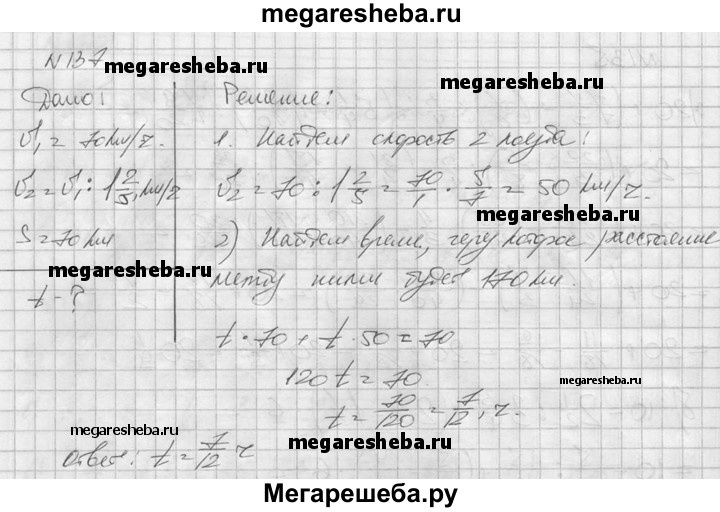 megaresheba.ru
N 137
megaresheba.ru
megaresheba.ru
Дано:
Решение:
V₁ = 70 км/ч.
1. Найдем скорость 2 поезда:
V₂ = V₁ : 1 2/5, км/ч
V₂ = 70 : 1 2/5 = 70/1 · 5/7 = 50 км/ч.
megaresheba.ru
S = 70 км
2) Найдем время, через которое расстояние
megaresheba.ru
t - ?
между ними будет 170 км.
t · 70 + t · 50 = 70
120t = 70.
megaresheba.ru
t = 70/120 = 7/12, ч.
megaresheba.ru
megaresheba.ru
Ответ: t = 7/12 ч
Мегарешеба.ру